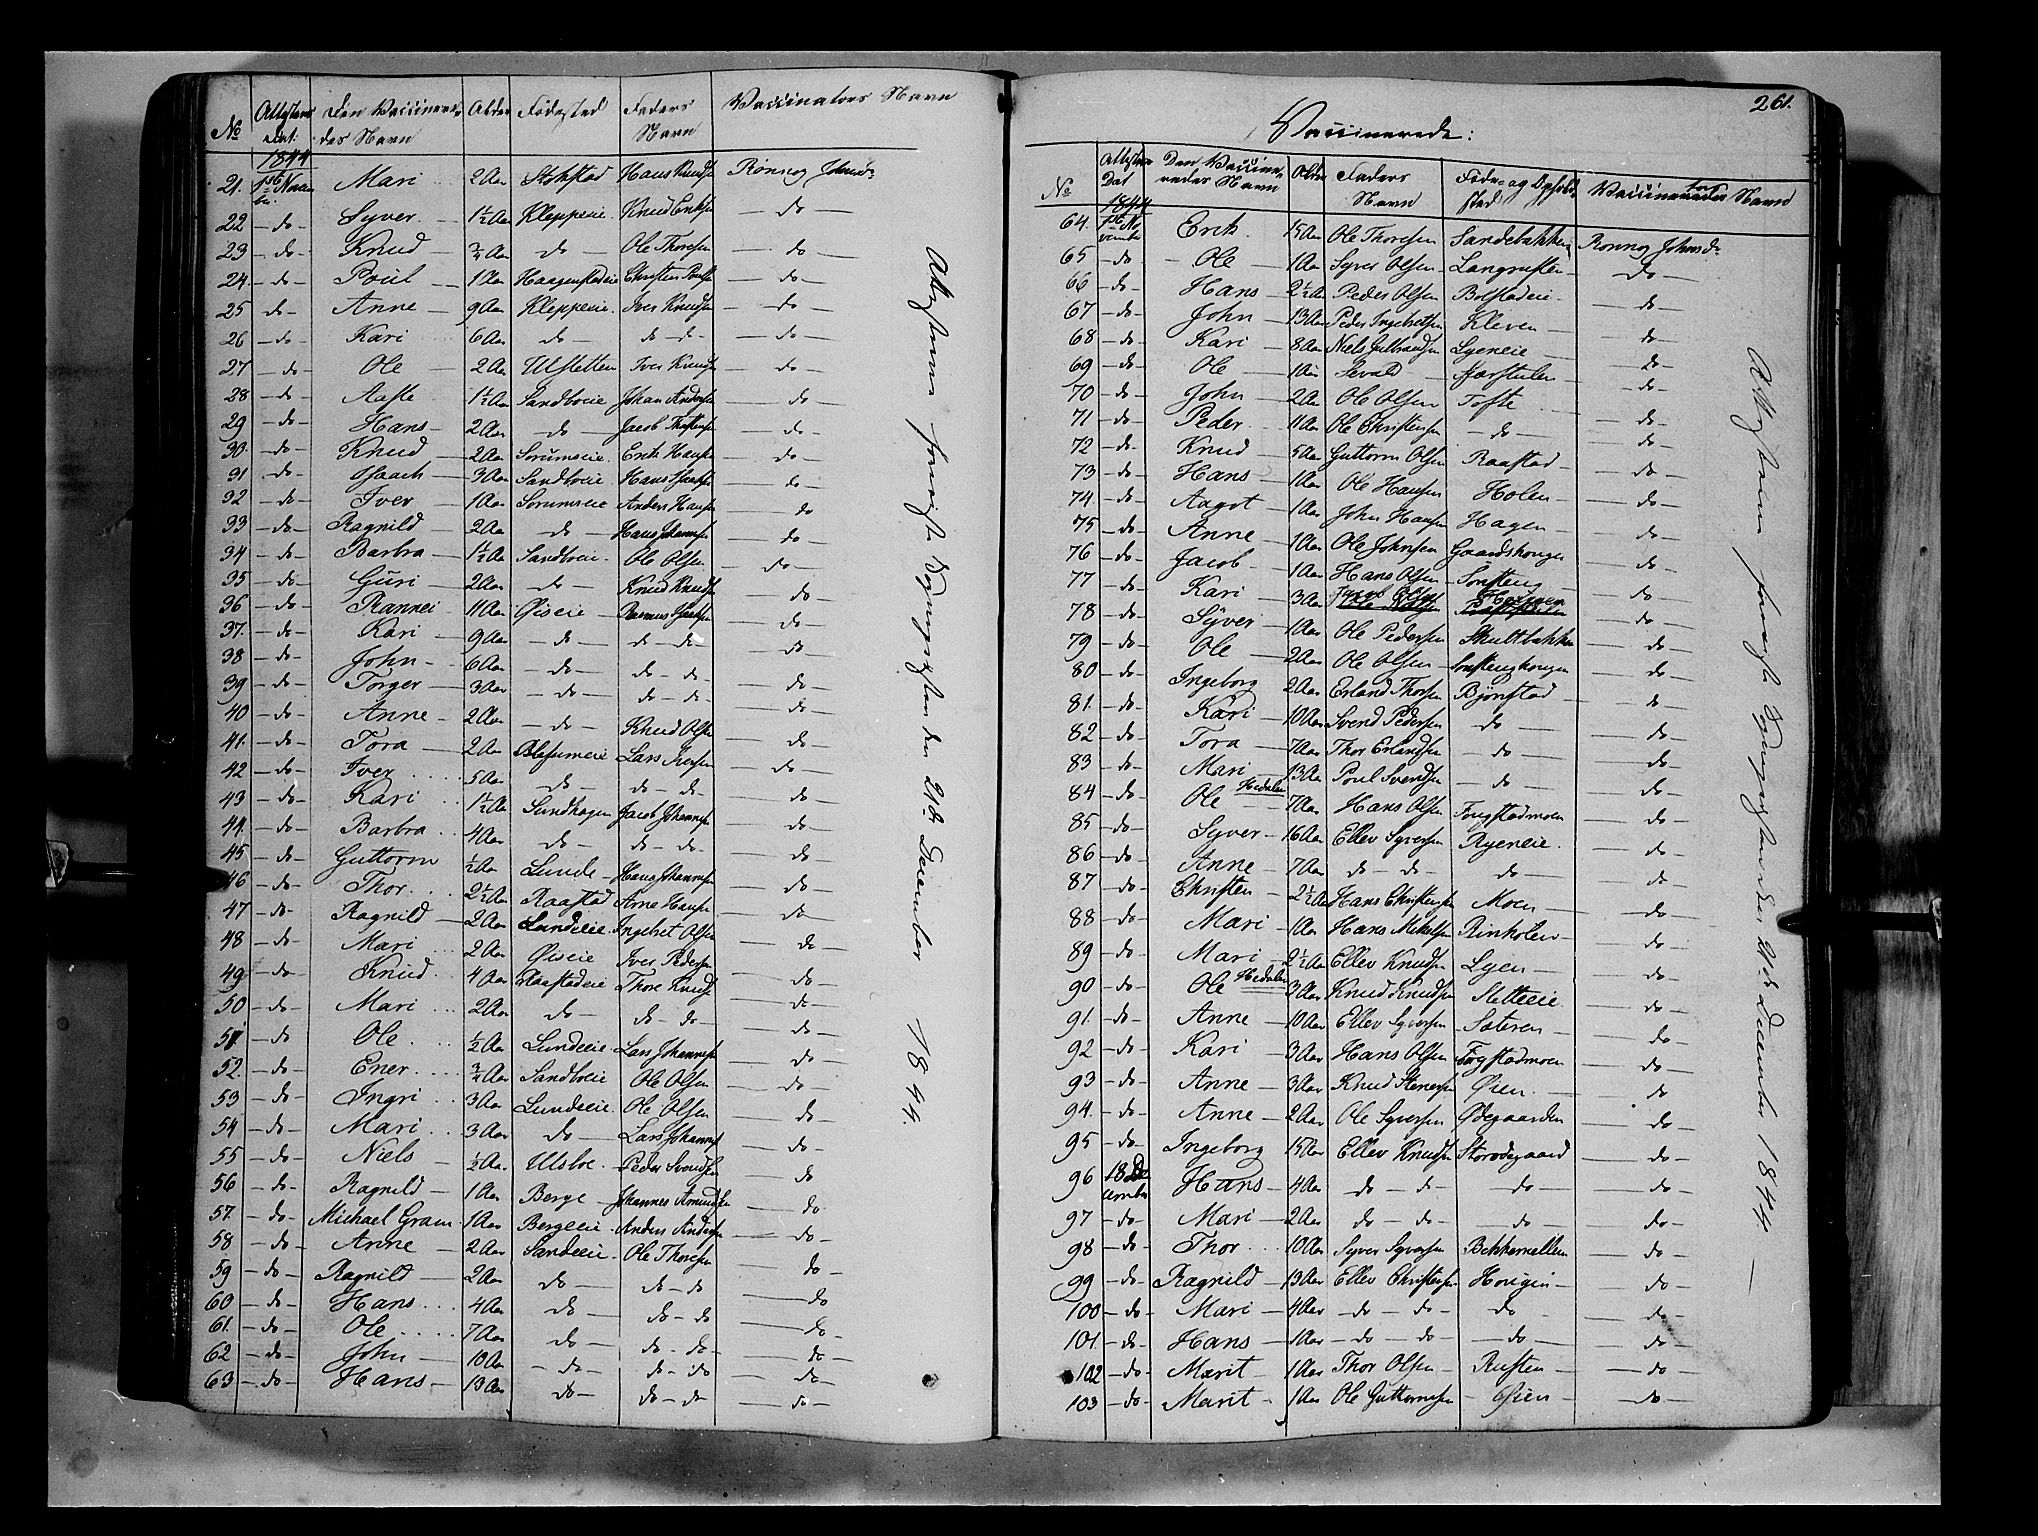 No Attestens Dat. Den Vaccineredes Navn Alder Fødested Faders Navn Vaccinators Navn
1844
21. 1ste Novembr. Mari 2 Aar Stokstad Hans Knudsen Rønnog Johnsdr
22 do Syver 1½ Aar Kleppeeie Knud Eriksen do
23 do Knud ¾ Aar do Ole Thoresen do
24 do Poul 1 Aar Haagenstadeie Christen do
25 do Anne 9 Aar Kleppeeie Iver Knudsen do
26 do Kari 6 Aar do do do do
27 do Ole 2 Aar Ulsletten Iver Knudsen do
28 do Aaste 1½ Aar Sandboeie Johan Andersen do
29 do Hans 2 Aar do Jacob do
30 do Knud 2 Aar Sorumseie Erik Hansen do
31 do Isaach 3 Aar Sandboeie Hans Isaaksen do
32 do Iver 1 Aar Sorumseie Anders Hansen do
33 do Ragnild 2 Aar do Hans Johannesen do
34 do Barbra 1½ Aar Sandboeie Ole Olsen do
35 do Guri 2 Aar do Knud Knudsen do
36 do Rannei 11 Aar Øiseie Rasmus Isaaksen do
37. do Kari 9 Aar do do do do
38 do John 6 Aar do do do
39 do Torger 3 Aar do do do do
40 do Anne 2 Aar do Knud Olsen do
41. do Tora 2 Aar Blessumeie Lars Iversen do
42 do Iver 5 Aar do do do do
43 do Kari 1½ Aar Sundhagen Jacob Johannesen do
44 do Barbra 4 Aar do do do do
45 do Guttorm ½ Aar Lunde Hans Johannesen do
46 do Thor 2½ Aar Raastad Arne Hansen do
47 do Ragnild 2 Aar Lundeeie Ingebret Olsen do
48 do Mari 2 Aar Øiseie Iver Pedersen do
49 do Knud 4 Aar Raastadeie Thore Knudsen do
50 do Mari 2 Aar do do do do
51 do Ole ½ Aar Lundeeie Lars Johannesen do
52. do Ener ¾ Aar Sandboeie Ole Olsen do
53 do Ingri 3 Aar Lundeeie Ole Olsen do
54 do Mari 3 Aar do Lars Johannesen do
55 do Niels ½ Aar Ulsboe Peder Svendsen do
56 do Ragnild 1 Aar Berge Johannes Amundsen do
57. do Michael Gram 1 Aar Bergeeie Anders Andersen do
58 do Anne 2 Aar Sandeeie Ole Thoresen do
59 do Ragnild 2 Aar do do do do
60 do Hans 4 Aar do do do do
61. do Ole 7 Aar do do do do
62 do John 10 Aar do do do do
63 do Hans 13 Aar do do do do
Attesterne foreviste Bygningsretten den 21de December 1844.
261.
Vaccinerede:
No Attestens Dat Den Vaccineredes Navn Alder Faders Navn Føde- og Opholdssted Vaccinators Navn
1844
64. 1ste November Erik 15 Aar Ole Thoresen Sandebakken Rønnog Johnsdr
65 do Ole 1 Aar Syver Olsen Langrusten do
66 do Hans 2½ Aar Peder Olsen Bolstadeie do
67 do John 13 Aar Peder Ingebretsen Kleven do
68 do Kari 8 Aar Niels Gulbrandsen Lyeneie do
69 do Ole 1 Aar Sevald do
70 do John 2 Aar Ole Olsen Tofte do
71 do Peder 11 Aar Ole Christensen do do
72 do Knud 5 Aar Guttorm Olsen Raastad do
73 do Hans 1 Aar Ole Hansen Holen do
74 do Aagot 1 Aar John Hansen Hagen do
75 do Anne 1 Aar Ole Johnsen Gaardshougen do
76 do Jacob 1 Aar Hans Olsen Sønsteng do
77 do Kari 3 Aar Jacob Olsen Hougen do
78 do Syver 1 Aar Ole Pedersen Skultbakken do
79 do Ole 2 Aar Ole Olsen Sønstenghougen do
80 do Ingeborg 2 Aar Erland Thorsen Bjørnstad do
81. do Kari 10 Aar Svend Pedersen do do
82 do Tora 7 Aar Thor Erlandsen do do
83 do Mari 13 Aar Poul Svendsen do do
84 do Ole Hedalen 7 Aar Hans Olsen Fougstadmoen do
85 do Syver 16 Aar Ellev Syversen Ryeneie do
86 do Anne 7 Aar do do do do
87 do Christen 2½ Aar Hans Christensen Moen do
88 do Mari 1 Aar Hans Mikelsen Rinholen do
89 do Mari 2½ Aar Ellev Knudsen Lyen do
90 do Ole Hedalen 3 Aar Knud Knudsen Sletteeie do
91. do Anne 10 Aar Ellev Syversen Sæteren do
92 do Kari 3 Aar Hans Olsen Fougstadmoen do
93 do Anne 3 Aar Knud Stenersen Øien do
94. do Anne 2 Aar Ole Syversen Ødegaarden do
95 do Ingeborg 15 Aar Ellev Knudsen Storødegaard do
96 18 December Hans 4 Aar do do do do
97 do Mari 2 Aar do do do do
98 do Thor 10 Aar Syver Syversen Bekkemellem do
99 do Ragnild 13 Aar Ellev Christensen Hougen do
100 do Mari 4 Aar do do do do
101. do Hans 1 Aar do do do do
102 do Marit 1 Aar Thor Olsen Rusten do
103 do Marit 1 Aar Ole Guttormsen Øien do
Attesterne foreviste Bygningsretten den 21de December 1844